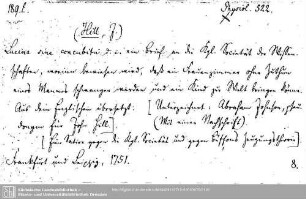 189 f.
Physiol. 522.
(Hill, J.)
Lucina sine concubitu, d. i. ein Brief an die Kgl. Societät der Wissen-
schaften, worinn bewiesen wird, daß ein Frauenzimmer ohne Zuthun
eines Mannes schwanger werden und ein Kind zur Welt bringen könne.
Aus dem Englischen übersetzt. [Unterzeichnet: Abraham Johnson, 
für Joh. Hill.] (Mit einer Nachschrift).
[Ein Satire gegen die Kgl. Societät und gegen Büffons Zeugungstheorie]
Frankfurt und Leipzig, 1751.
8.